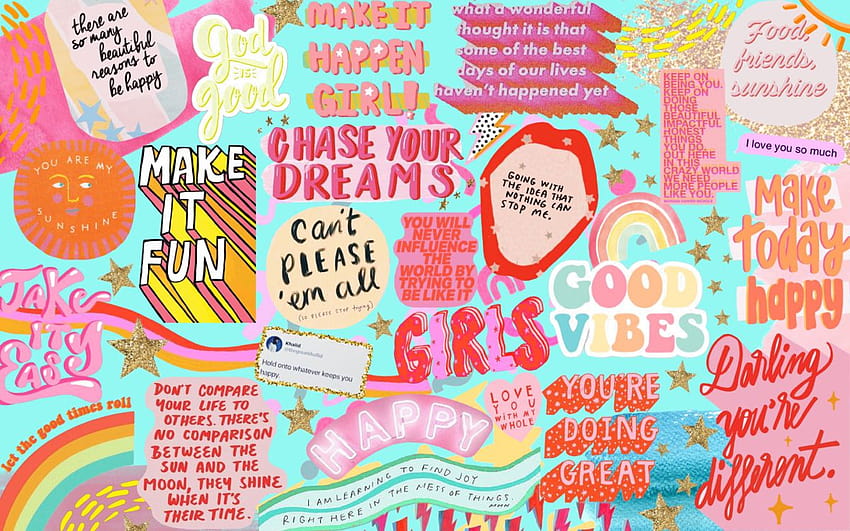 there are
so many
beautiful
reasons to
be happy
god
is
good
MAKE IT
HAPPEN
GIRL!
what a wonderful
thought it is that
some of the best
days of our lives
haven't happened yet
Food,
friends,
sunshine
KEEP ON
BEING YOU.
KEEP ON
DOING
THOSE
BEAUTIFUL
IMPACTFUL
HONEST
THINGS
YOU DO.
OUT HERE
IN THIS
CRAZY WORLD
WE NEED
MORE PEOPLE
LIKE YOU.
I love you so much
YOU ARE MY
SUNSHINE
MAKE
IT
FUN
CHASE YOUR
DREAMS
GOING WITH
THE IDEA THAT
NOTHING CAN
STOP ME.
Make
today
happy
Can't
PLEASE
'em all
(SO PLEASE STOP trying)
YOU WILL
NEVER
INFLUENCE
THE
WORLD BY
TRYING TO
BE LIKE IT
GOOD
VIBES
TAKE
IT
EASY
GIRLS
Khalid
Hold onto whatever keeps you
happy.
Darling
you're
different.
let the good times roll
DON'T COMPARE
YOUR LIFE TO
OTHERS. THERE'S
NO COMPARISON
BETWEEN THE
SUN AND THE
MOON, THEY SHINE
WHEN IT'S
THEIR TIME.
HAPPY
I LOVE
YOU
WITH MY
WHOLE
YOU'RE
DOING
GREAT
I AM LEARNING TO FIND JOY
RIGHT HERE IN THE MESS OF THINGS.